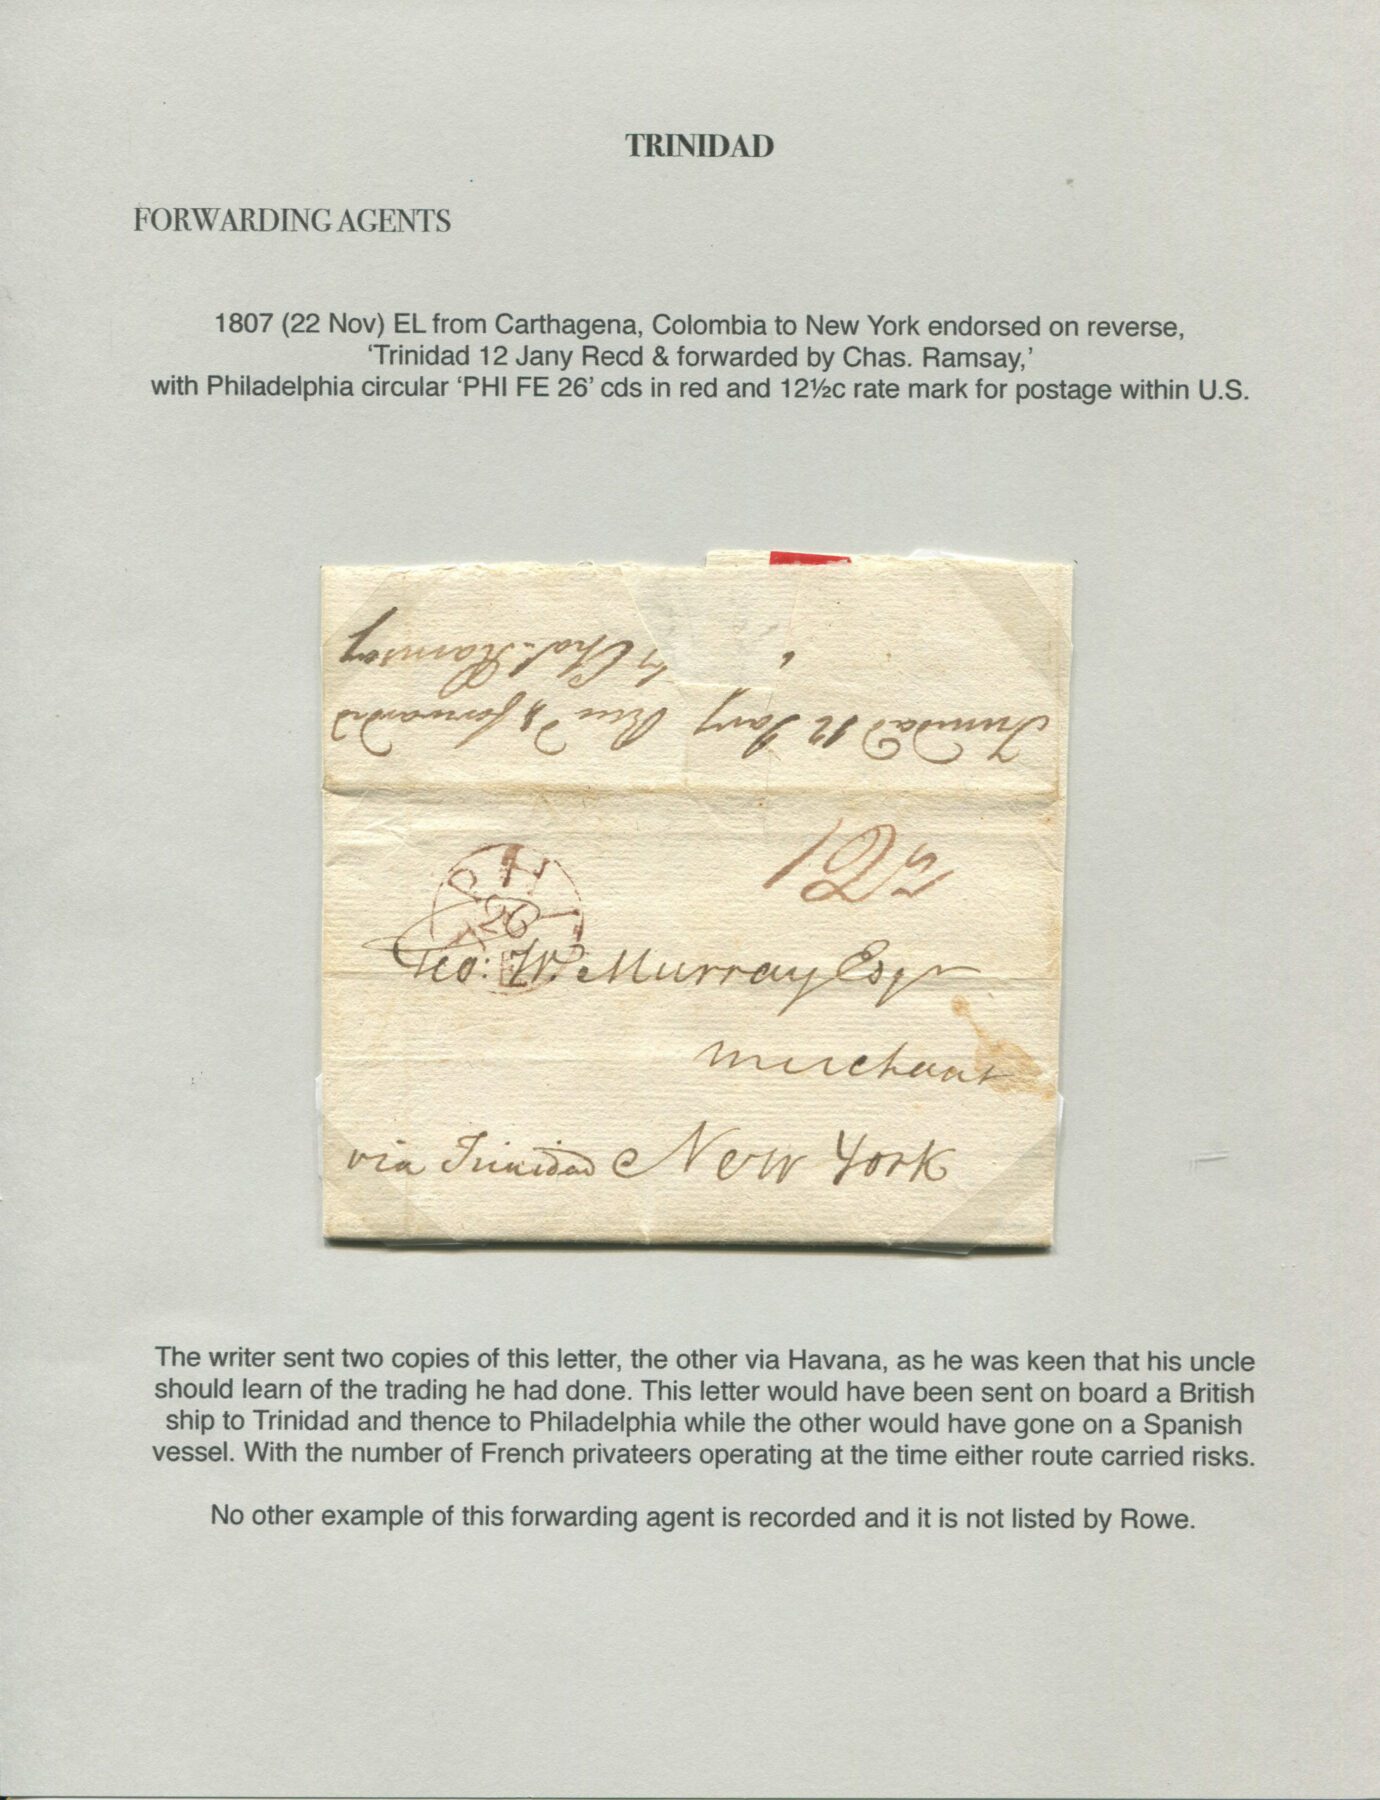 TRINIDAD
FORWARDING AGENTS
1807 (22 Nov) EL from Carthagena, Colombia to New York endorsed on reverse,
‘Trinidad 12 Jany Recd & forwarded by Chas. Ramsay,’
with Philadelphia circular ‘PHI FE 26’ cds in red and 12½c rate mark for postage within U.S.
Trinidad 12 Jany Recd & forwarded
by Chas. Ramsay
12½
PHI
26
FE
Geo: W. Murray Esqr
merchant
via Trinidad New York
The writer sent two copies of this letter, the other via Havana, as he was keen that his uncle
should learn of the trading he had done. This letter would have been sent on board a British
ship to Trinidad and thence to Philadelphia while the other would have gone on a Spanish
vessel. With the number of French privateers operating at the time either route carried risks.
No other example of this forwarding agent is recorded and it is not listed by Rowe.